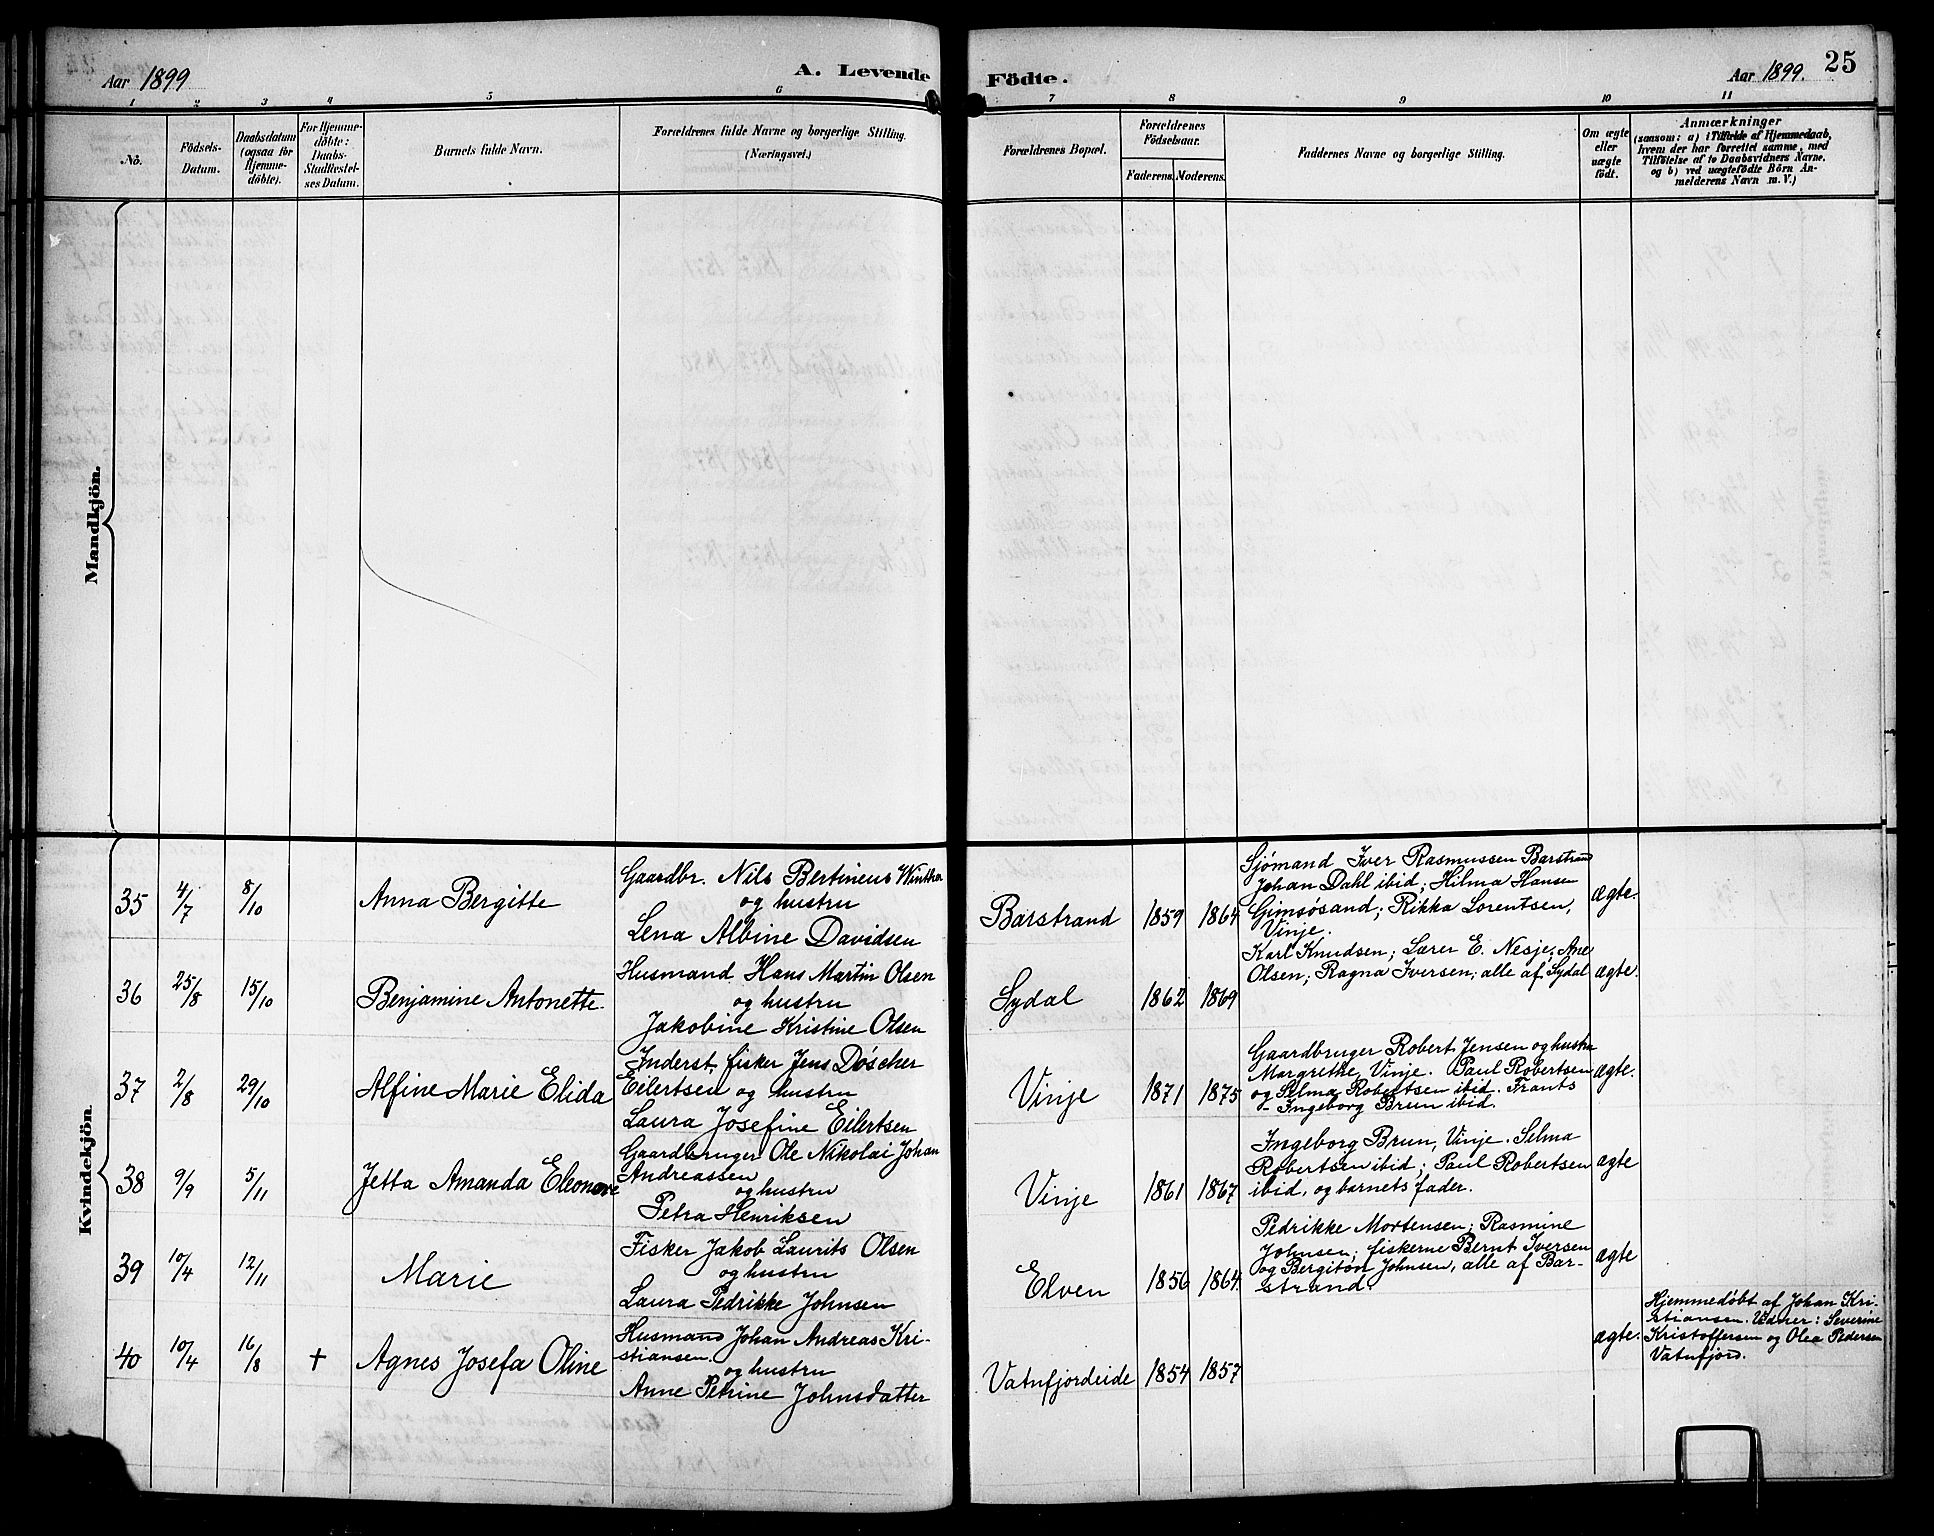 Aar 1899
A. Levende
Födte.
Aar 1899.
25
1 2 3 4 5 6 7 8 9 10 11
No.
Födsels-
Datum.
Daabsdatum
(ogsaa for
Hjemme-
döbte).
For Hjemme-
döbte:
Daabs-
Stadfæstel-
ses Datum.
Barnets fulde Navn.
Forældrenes fulde Navne og borgerlige Stilling.
(Næringsvei.)
Forældrenes Bopæl.
Forældrenes
Födselsaar.
Faderens. Moderens.
Faddernes Navne og borgerlige Stilling.
Om ægte
eller
uægte
födt.
Anmærkninger
(saasom: a) i Tilfælde af Hjemmedaab,
hvem der har forrettet samme, med
Tilföielse af to Daabsvidners Navne,
og b) ved uægtefödte Börn An-
melderens Navn m. V.)
Mandkjön.
Kvindekjön.
35 4/7 8/10 Anna Bergitte
Gaardbr. Nils Bertineus Winther
og hustru
Lena Albine Davidsen
Barstrand 1859 1864
Sjómand Iver Rasmussen Barstrand
Johan Dahl ibid; Hilma Hansen
Gimsósand; Rikka Lorentsen,
Vinje.
ægte.
36 25/8 15/10 Benjamine Antonette
Husmand Hans Martin Olsen
og hustru
Jakobine Kristine Olsen
Sydal 1862 1869
Karl Knudsen; Lærer E. Nesje; Ane
Olsen; Ragna Iversen; alle af Sydal
ægte.
37 2/8 29/10 Alfine Marie Elida
Inderst, fisker Jens Dóscher
Eilertsen og hustru
Laura Josefine Eilertsen
Vinje 1871 1875
Gaardbruger Robert Jensen og hustru
Margrethe, Vinje. Paul Robertsen
og Selma Robertsen ibid. Frants
- Ingeborg Brun ibid.
ægte.
38 9/9 5/11 Jetta Amanda Eleonore
Gaardbruger Ole Nikolai Johan
Andreassen
og hustru
Petra Henriksen
Vinje 1861 1867
Ingeborg Brun, Vinje. Selma
Robertsen ibid; Paul Robertsen
ibid, og barnets fader.
ægte
39 10/4 12/11 Marie
Fisker Jakob Laurits Olsen
og hustru
Laura Pedrikke Johnsen
Elven 1856 1864.
Pedrikke Mortensen; Rasmine
Johnsen; fiskerne Bernt Iversen
og Bergiton Johnsen, alle af Bar-
strand.
ægte
40 10/4 16/8 † Agnes Josefa Oline
Husmand Johan Andreas Kri-
stiansen.
og hustru
Anne Petrine Johnsdatter
Vatnfjordeide 1854 1857
ægte.
Hjemmedóbt af Johan Kri-
stiansen. Vidner: Severine
Kristoffersen og Olea Pedersen
Vatnfjord.